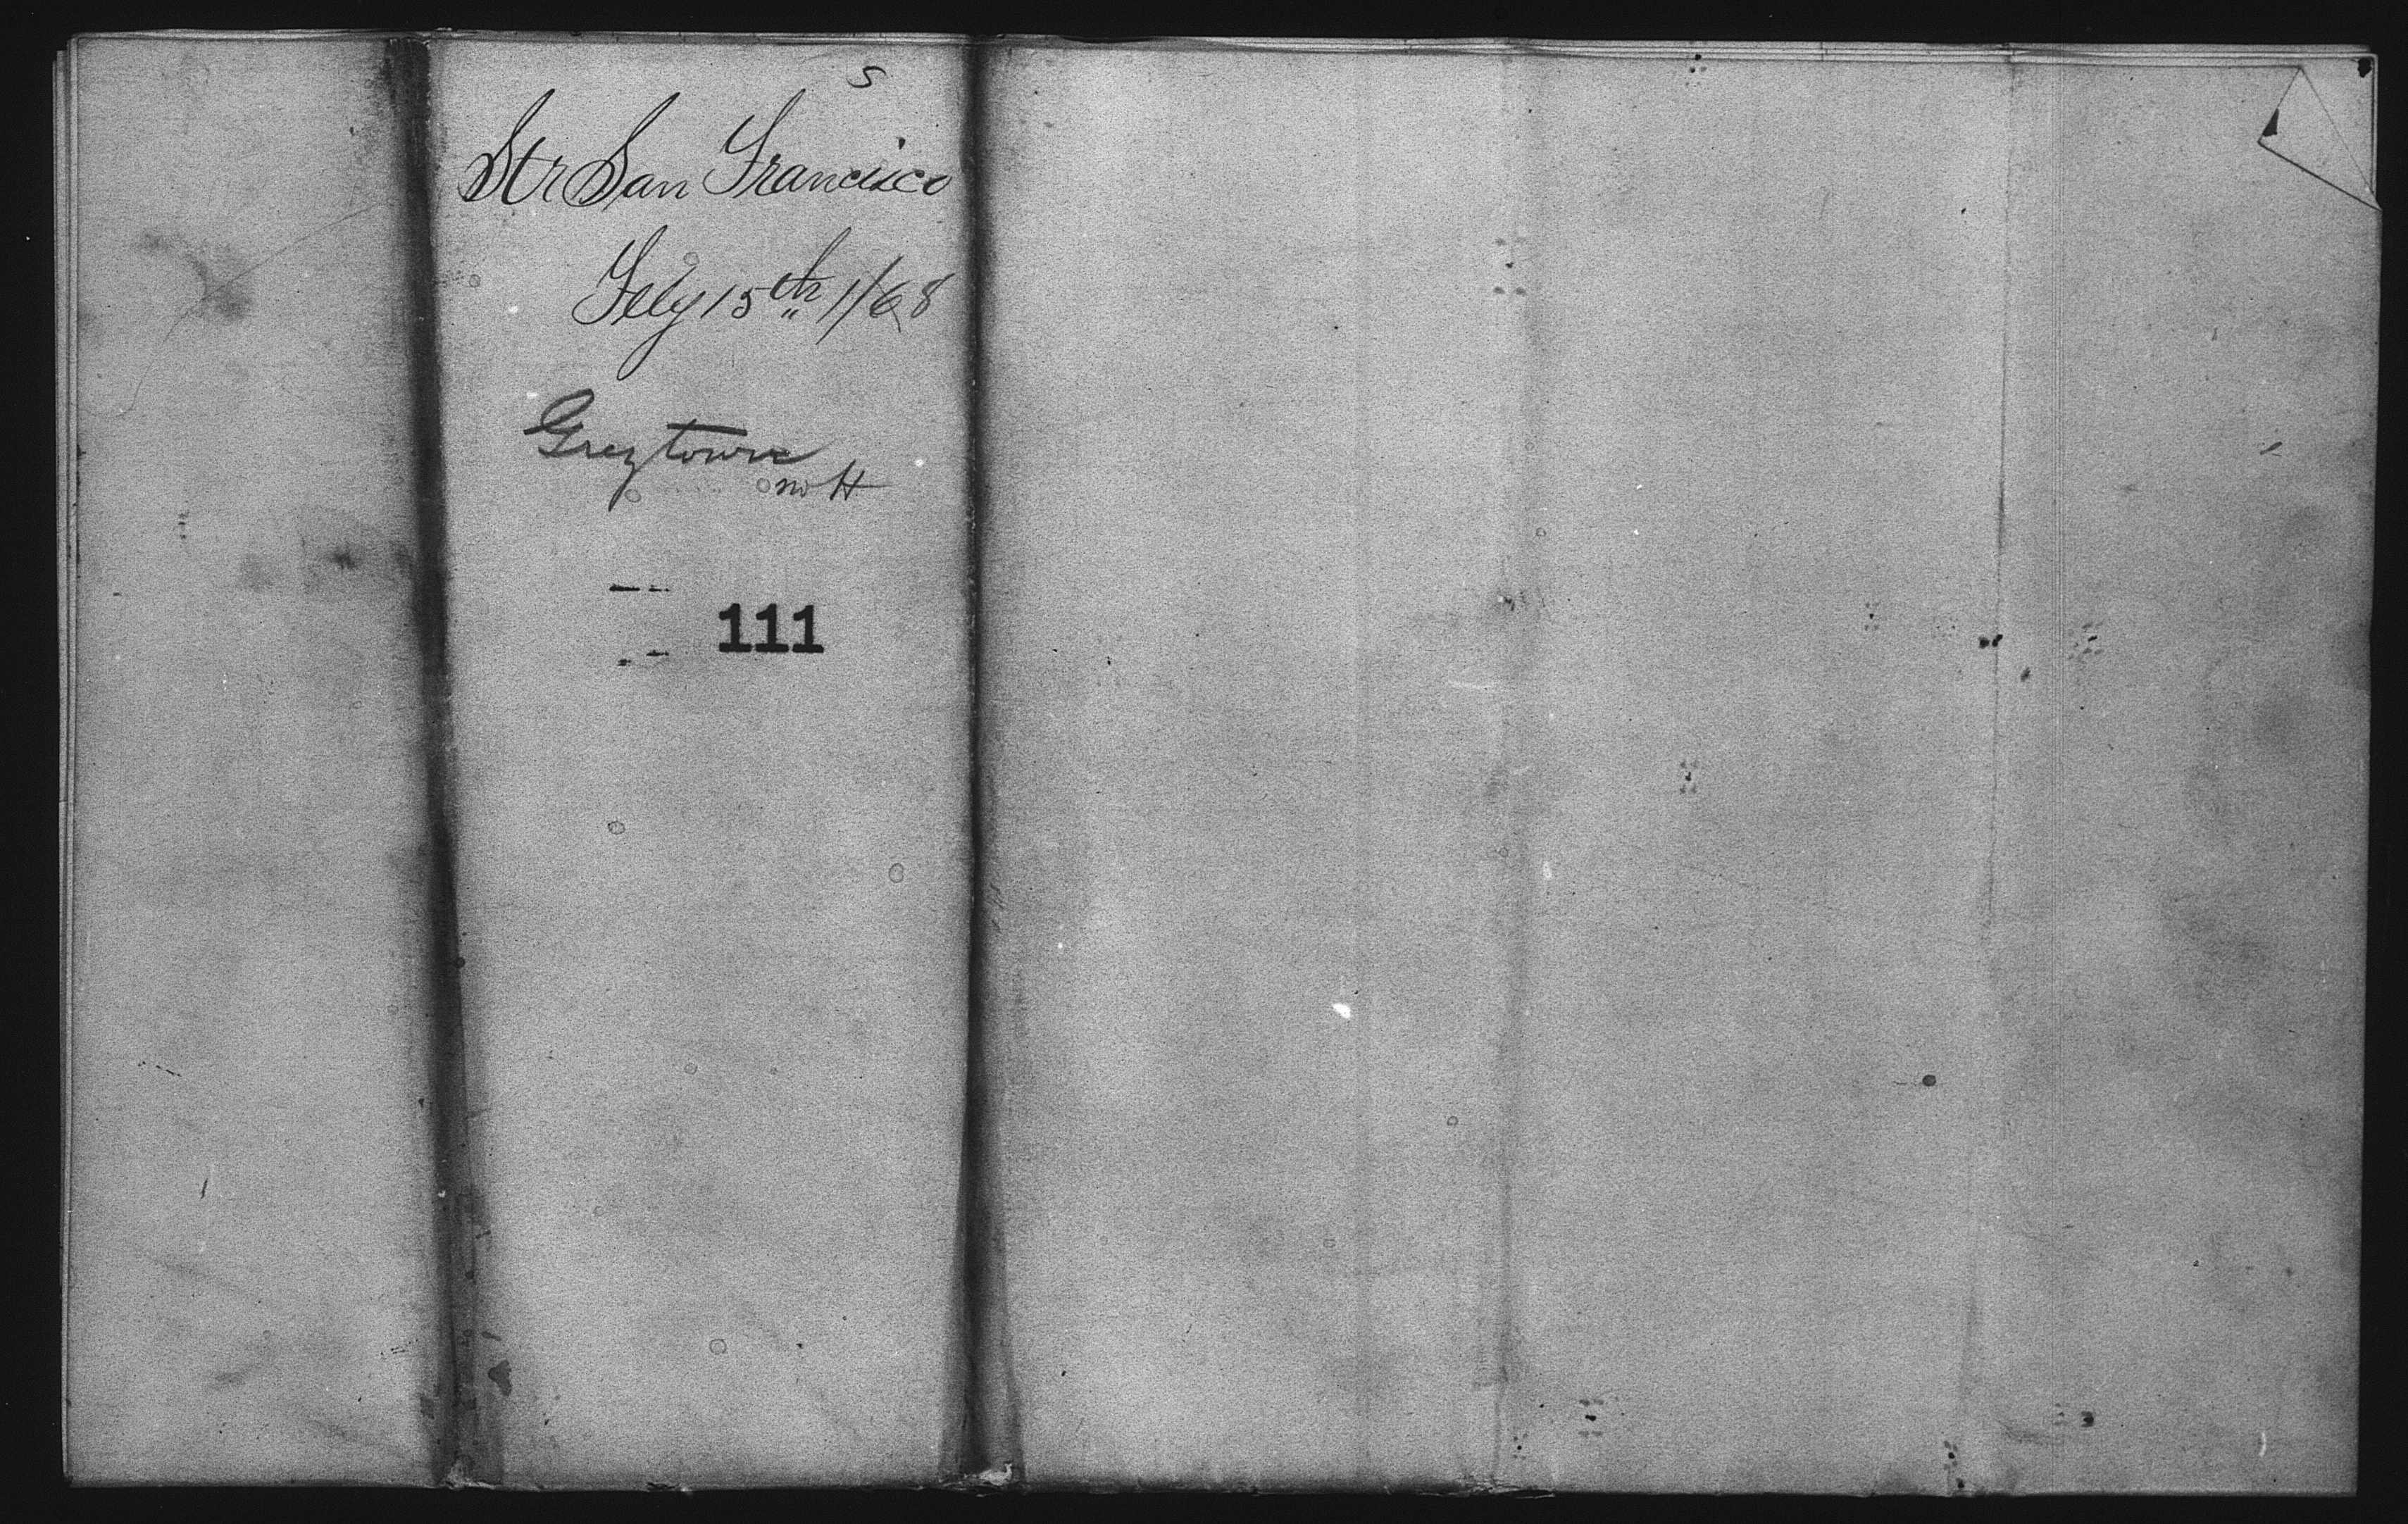 S
Str San Francisco
Feby 15th 1/68
Greytown
no H
111